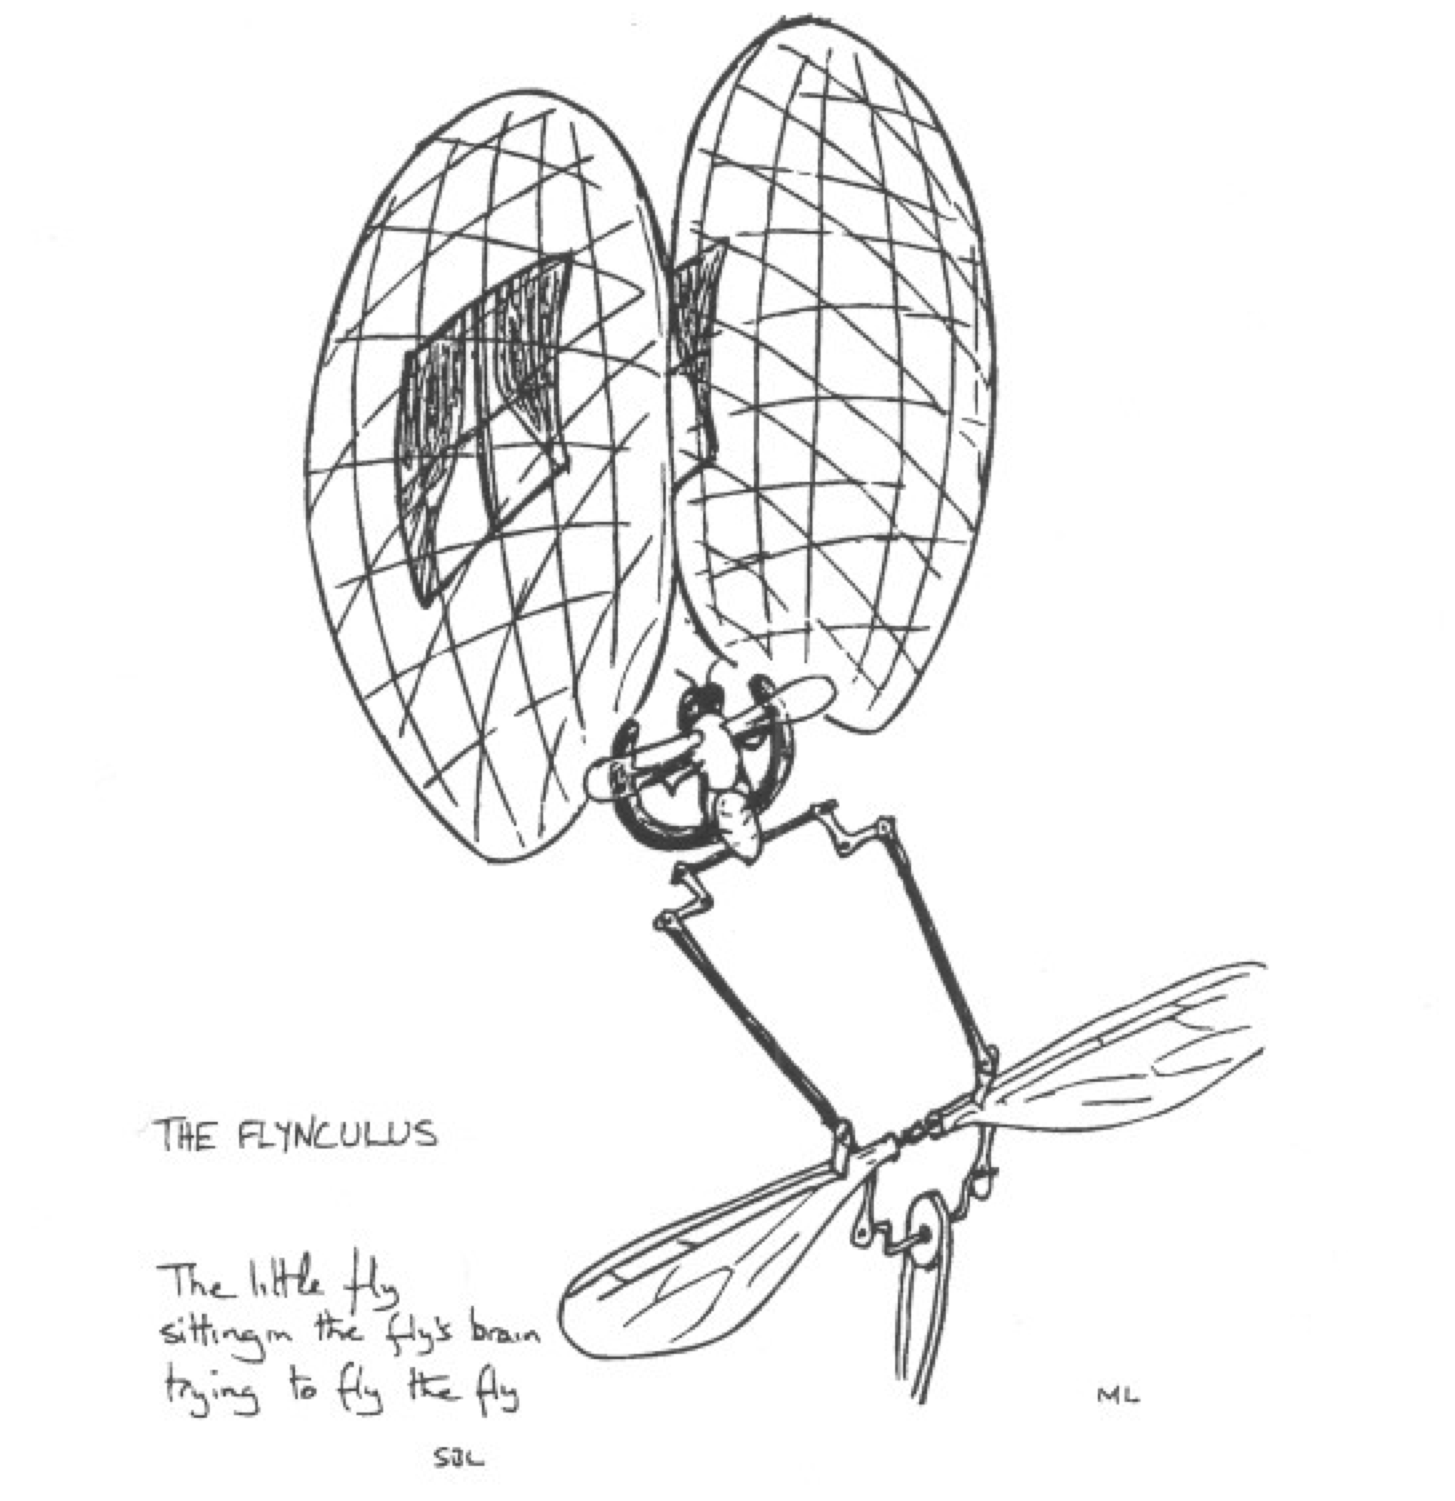 THE FLYNCULUS
The little fly
sitting in the fly's brain
trying to fly the fly
SBL
ML